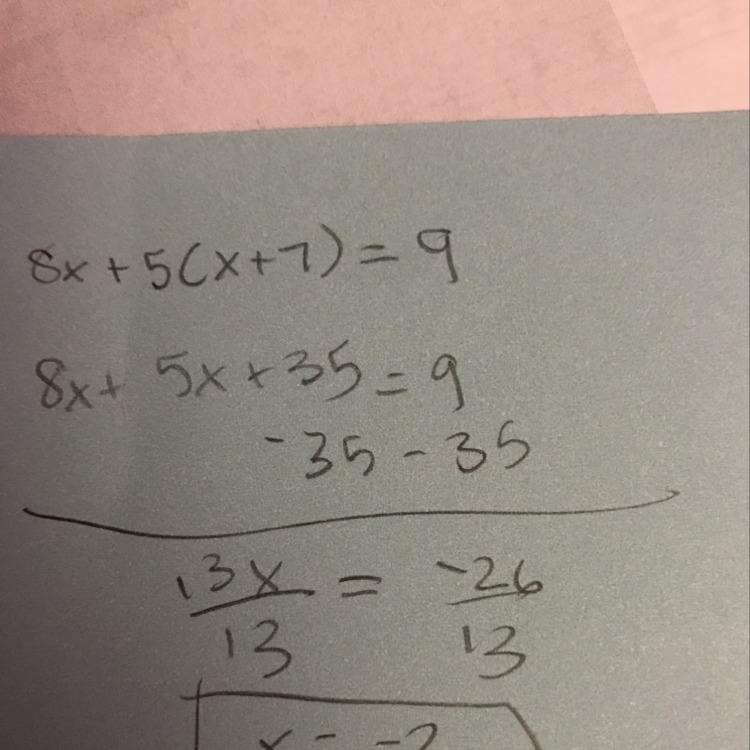 8x + 5(x+7) = 9
8x + 5x + 35 = 9
-35 - 35
13x = -26
13 13
x = -2